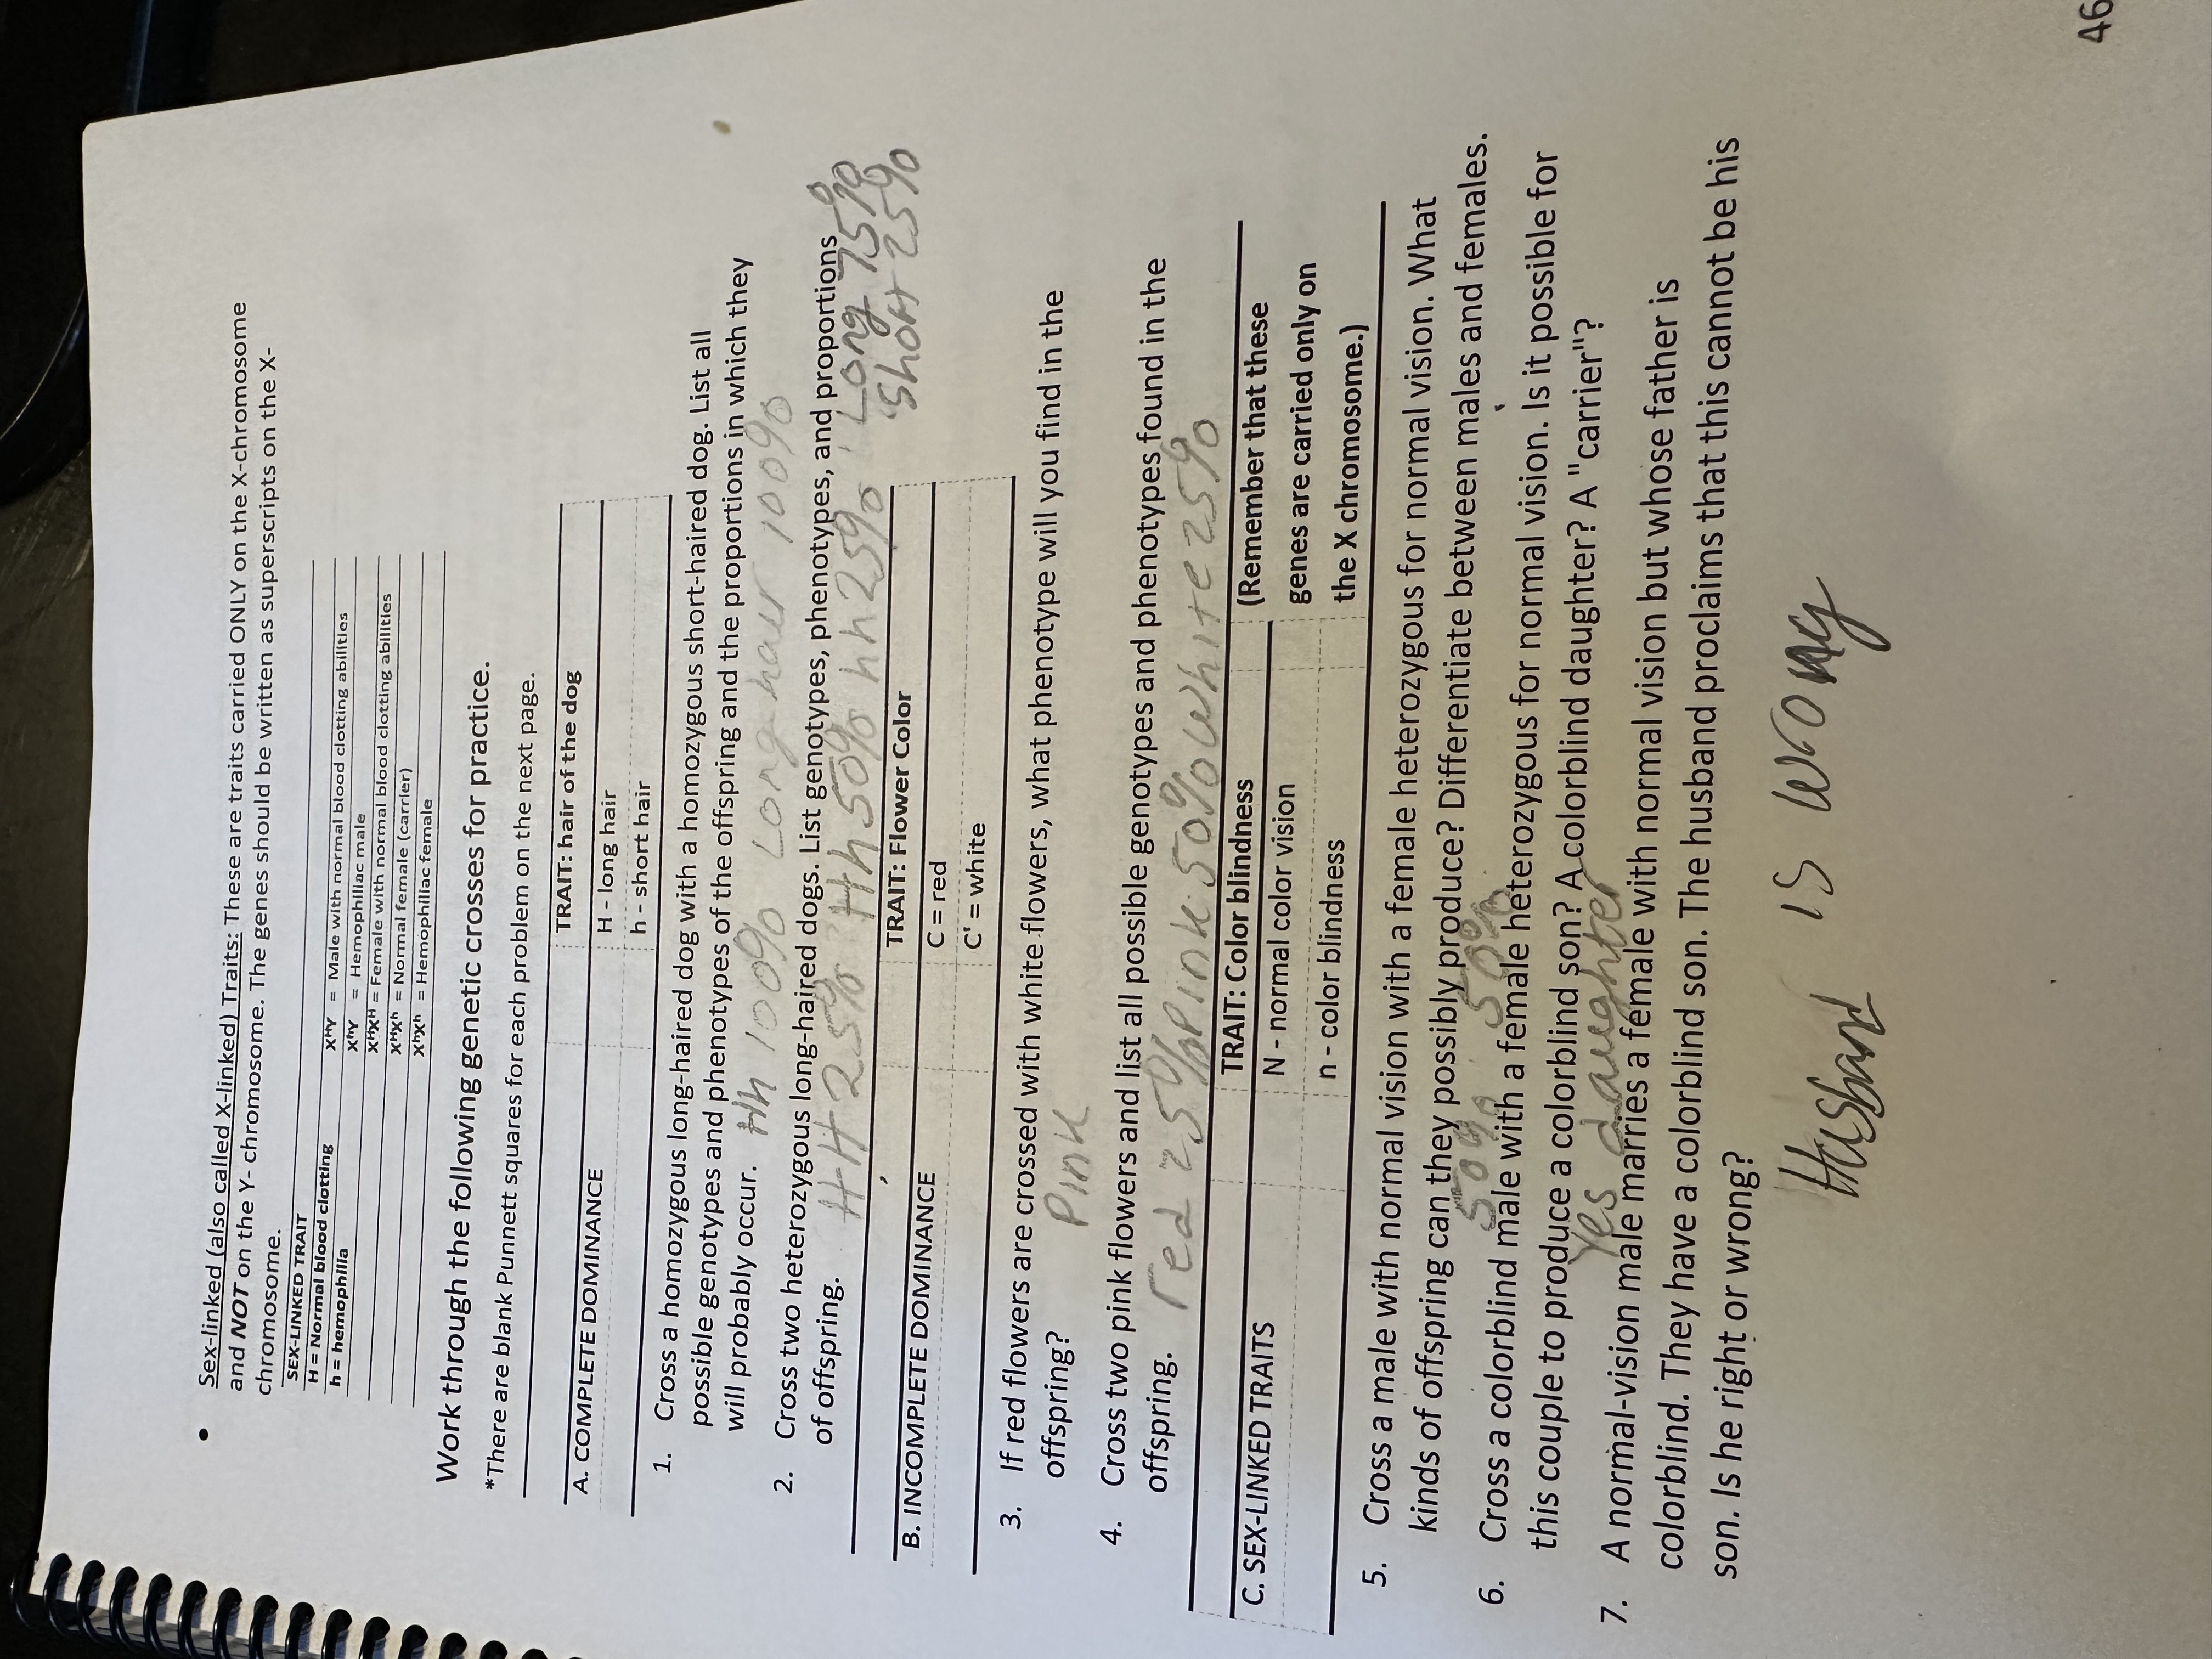 • Sex-linked (also called X-linked) Traits: These are traits carried ONLY on the X-chromosome
and NOT on the Y- chromosome. The genes should be written as superscripts on the X-
chromosome.
SEX-LINKED TRAIT
H = Normal blood clotting XᴴY = Male with normal blood clotting abilities
h = hemophilia XʰY = Hemophiliac male
XᴴXᴴ = Female with normal blood clotting abilities
XᴴXʰ = Normal female (carrier)
XʰXʰ = Hemophiliac female
Work through the following genetic crosses for practice.
*There are blank Punnett squares for each problem on the next page.
TRAIT: hair of the dog
A. COMPLETE DOMINANCE
H - long hair
h - short hair
1. Cross a homozygous long-haired dog with a homozygous short-haired dog. List all
possible genotypes and phenotypes of the offspring and the proportions in which they
will probably occur. Hh 100% Long hair 100%
2. Cross two heterozygous long-haired dogs. List genotypes, phenotypes, and proportions
of offspring. HH 25% Hh 50% hh 25% Long 75%
Short 25%
TRAIT: Flower Color
B. INCOMPLETE DOMINANCE
C = red
C' = white
3. If red flowers are crossed with white flowers, what phenotype will you find in the
offspring? Pink
4. Cross two pink flowers and list all possible genotypes and phenotypes found in the
offspring. red 25% Pink 50% White 25%
TRAIT: Color blindness (Remember that these
C. SEX-LINKED TRAITS
N - normal color vision genes are carried only on
n - color blindness the X chromosome.)
5. Cross a male with normal vision with a female heterozygous for normal vision. What
kinds of offspring can they possibly produce? Differentiate between males and females.
50% 50%
6. Cross a colorblind male with a female heterozygous for normal vision. Is it possible for
this couple to produce a colorblind son? A colorblind daughter? A "carrier"?
Yes daughter
7. A normal-vision male marries a female with normal vision but whose father is
colorblind. They have a colorblind son. The husband proclaims that this cannot be his
son. Is he right or wrong?
Husband is wrong
46